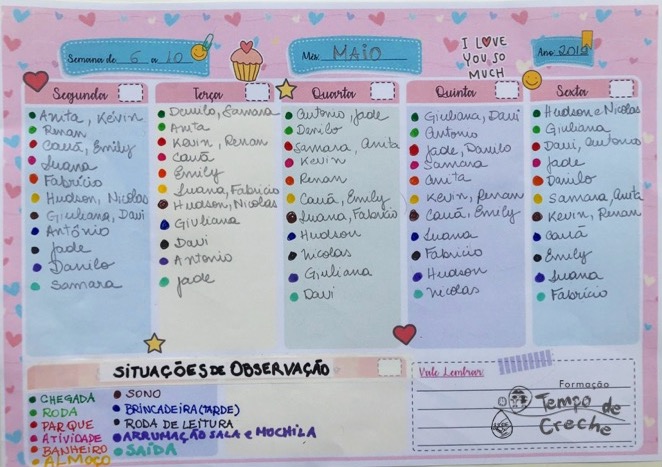 Semana de 6 a 10
Mês MAIO
I LOVE
YOU SO
MUCH
Ano 2019
Segunda
Anita, Kevin
Renan
Cauã, Emily
Luana
Fabrício
Hudson, Nicolas
Giuliana, Davi
Antônio
Jade
Danilo
Samara
Terça
Danilo, Samara
Anita
Kevin, Renan
Cauã
Emily
Luana, Fabricio
Hudson, Nicolas
Giuliana
Davi
Antonio
Jade
Quarta
Antonio, Jade
Danilo
Samara, Anita
Kevin
Renan
Cauã, Emily
Luana, Fabricio
Hudson
Nicolas
Giuliana
Davi
Quinta
Giuliana, Davi
Antonio
Jade, Danilo
Samara
Anita
Kevin, Renan
Cauã, Emily
Luana
Fabricio
Hudson
Nicolas
Sexta
Hudson e Nicolas
Giuliana
Davi, Antonio
Jade
Danilo
Samara, Anita
Kevin, Renan
Cauã
Emily
Luana
Fabricio
SITUAÇÕES DE OBSERVAÇÃO
CHEGADA
RODA
PARQUE
ATIVIDADE
BANHEIRO
ALMOÇO
SONO
BRINCADEIRA (TARDE)
RODA DE LEITURA
ARRUMAÇÃO SALA e MOCHILA
SAÍDA
Vale Lembrar:
Formação
Tempo de
Creche